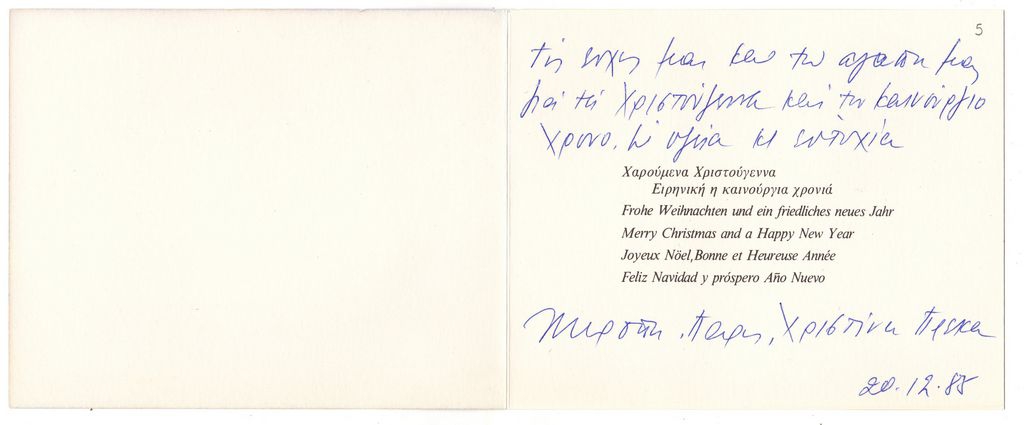 5
τις ευχες μας και την αγαπη μας
για τα Χριστούγεννα και τον καινούργιο
χρονο. Με υγεια κι ευτυχία
Χαρούμενα Χριστούγεννα
Ειρηνική η καινούργια χρονιά
Frohe Weihnachten und ein friedliches neues Jahr
Merry Christmas and a Happy New Year
Joyeux Nöel,Bonne et Heureuse Année
Feliz Navidad y próspero Año Nuevo
Χριστίνα
20.12.85